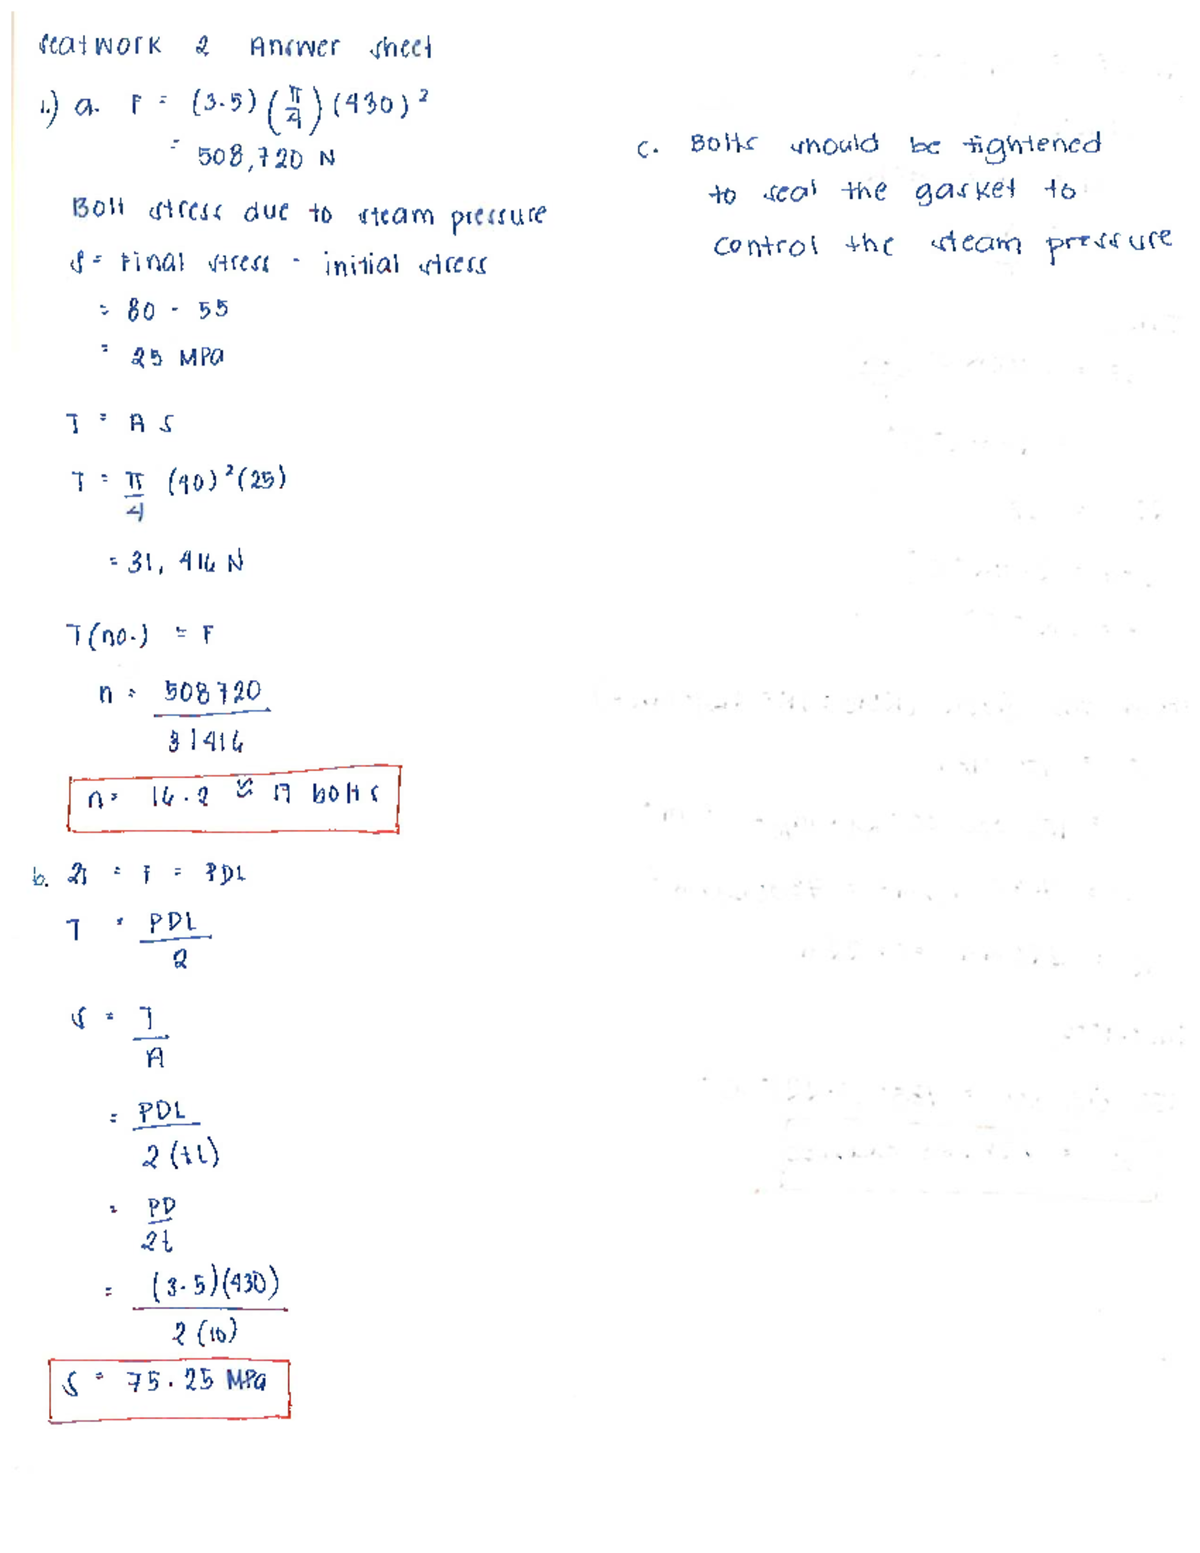 Seatwork 2 Answer sheet
1.) a. F = (3.5) (π/4) (430)²
= 508,720 N
Bolt stress due to steam pressure
S = Final stress - initial stress
= 80 - 55
= 25 MPa
T = A S
T = π/4 (40)² (25)
= 31, 416 N
T(no.) = F
n = 508720 / 31416
n = 16.2 ≈ 17 bolts
b. 2T = F = PDL
T = PDL / 2
S = T / A
= PDL / 2(tL)
= PD / 2t
= (3.5)(430) / 2(10)
S = 75.25 MPa
c. Bolts should be tightened
to seal the gasket to
control the steam pressure